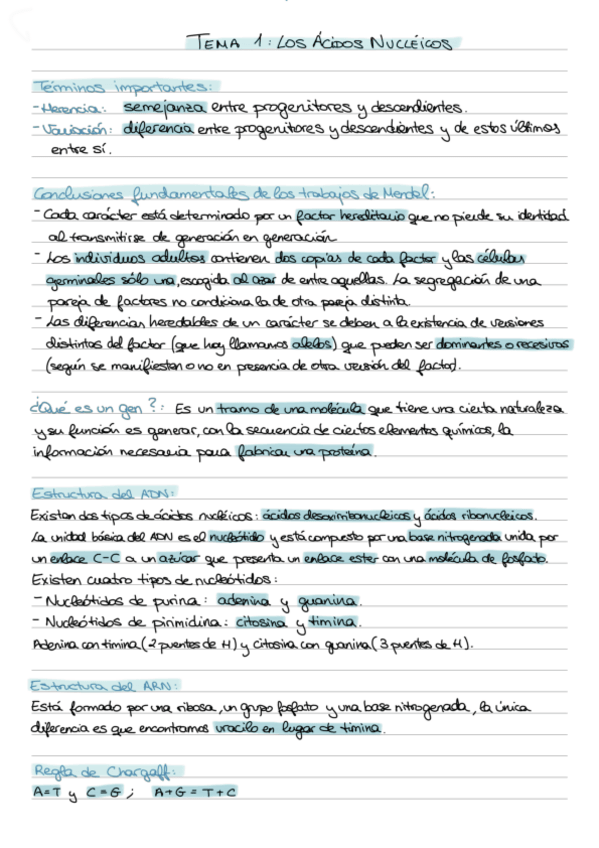 TEMA 1: LOS ÁCIDOS NUCLÉICOS
Términos importantes:
- Herencia: semejanza entre progenitores y descendientes.
- Variación: diferencia entre progenitores y descendientes y de estos últimos
entre sí.
Conclusiones fundamentales de los trabajos de Mendel:
- Cada carácter está determinado por un factor hereditario que no pierde su identidad
al transmitirse de generación en generación.
- Los individuos adultos contienen dos copias de cada factor y las células
germinales sólo una, escogida al azar de entre aquellas. La segregación de una
pareja de factores no condiciona la de otra pareja distinta.
- Las diferencias heredables de un carácter se deben a la existencia de versiones
distintas del factor (que hoy llamamos alelos) que pueden ser dominantes o recesivas
(según se manifiesten o no en presencia de otra versión del factor).
¿Qué es un gen?: Es un tramo de una molécula que tiene una cierta naturaleza
y su función es generar, con la secuencia de ciertos elementos químicos, la
información necesaria para fabricar una proteína.
Estructura del ADN:
Existen dos tipos de ácidos nucléicos: ácidos desoxirribonucleicos y ácidos ribonucleicos.
La unidad básica del ADN es el nucleótido y está compuesto por una base nitrogenada unida por
un enlace C-C a un azúcar que presenta un enlace ester con una molécula de fosfato.
Existen cuadro tipos de nucleótidos:
- Nucleótidos de purina: adenina y guanina.
- Nucleótidos de pirimidina: citosina y timina.
Adenina con timina (2 puentes de H) y citosina con guanina (3 puentes de H).
Estructura del ARN:
Está formado por una ribosa, un grupo fosfato y una base nitrogenada, la única
diferencia es que encontramos uracilo en lugar de timina.
Regla de Chargaff:
A=T y C=G ; A+G = T+C